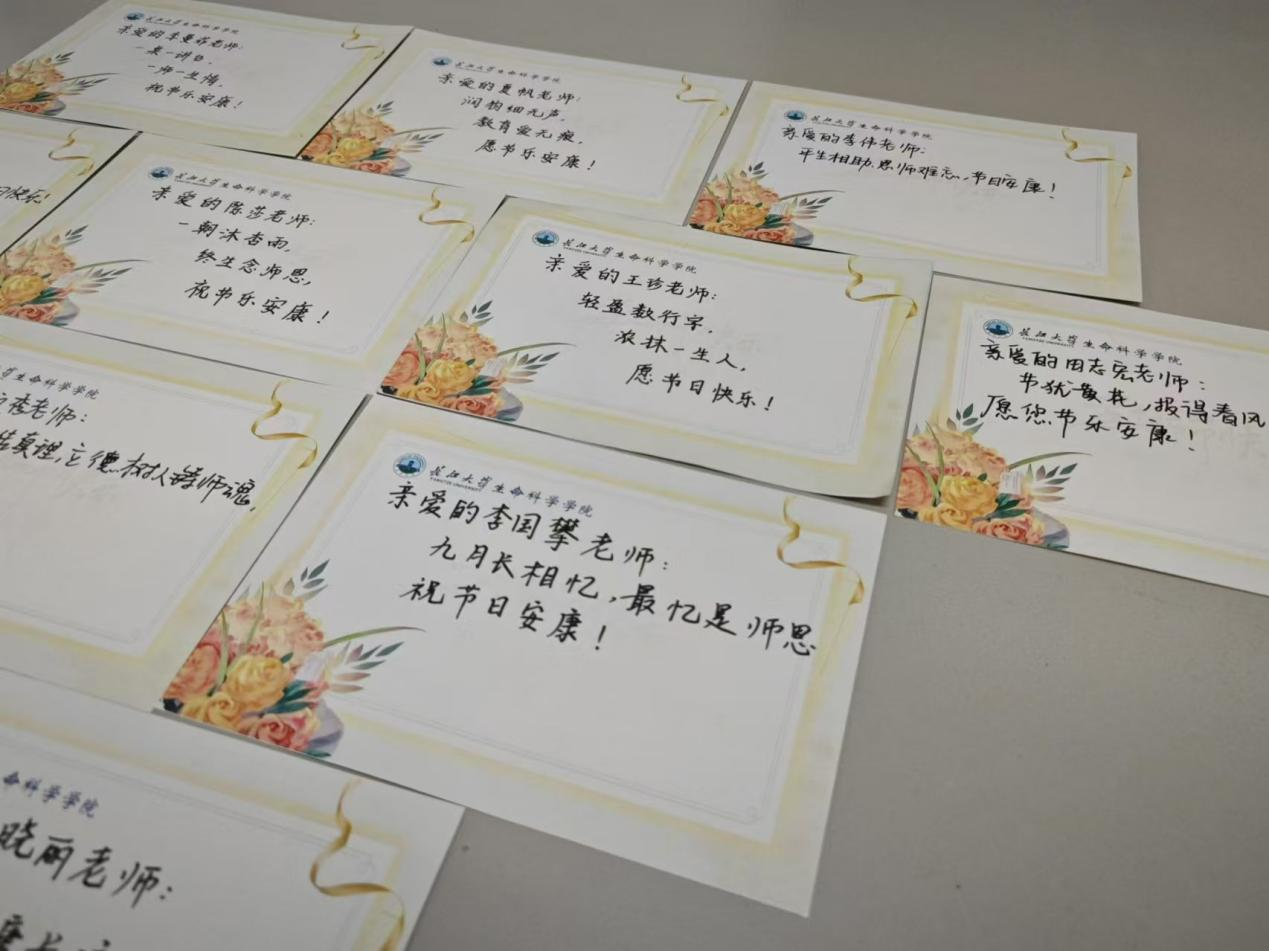 长江大学生命科学学院
亲爱的李曼菲老师:
一桌一讲台,
一师一生情,
祝节乐安康!
长江大学生命科学学院
亲爱的夏帆老师:
润物细无声,
教育爱无痕,
愿节乐安康!
长江大学生命科学学院
亲爱的李伟老师:
平生相助恩师难忘,节日安康!
快乐!
长江大学生命科学学院
亲爱的陈莎老师:
一朝沐杏雨,
终生念师恩,
祝节乐安康!
长江大学生命科学学院
YANGTZE UNIVERSITY
亲爱的王珍老师:
轻盈数行字,
浓抹一生人,
愿节日快乐!
长江大学生命科学学院
YANGTZE UNIVERSITY
亲爱的田志宏老师:
节犹黄花,报得春风
愿您节乐安康!
生命科学学院
老师:
真理,立德树人铸师魂,
长江大学生命科学学院
YANGTZE UNIVERSITY
亲爱的李国攀老师:
九月长相忆,最忆是师恩
祝节日安康!
命科学学院
晓丽老师: